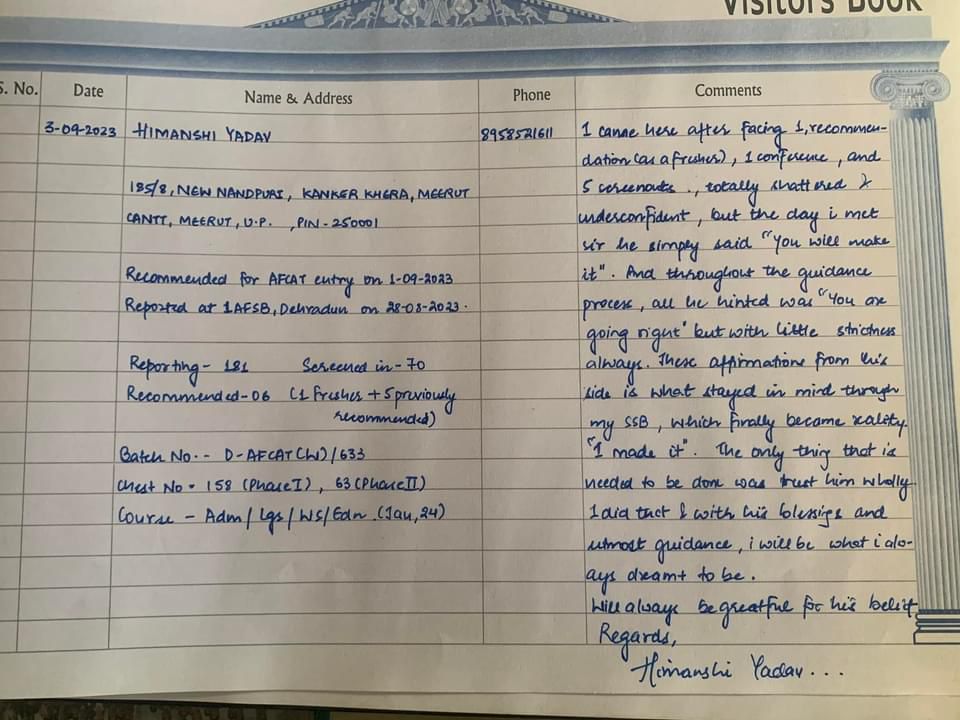 VISITORS BOOK
S. No.
Date
Name & Address
Phone
Comments
3-09-2023
HIMANSHI YADAV
8958521611
185/8, NEW NANDPURI, KANKER KHERA, MEERUT
CANTT, MEERUT, U.P. , PIN-250001
Recommended for AFCAT entry on 1-09-2023
Reported at 1AFSB, Dehradun on 28-08-2023.
Reporting- 181 Screened in-70
Recommended-06 (1 Fresher + 5 previously
recommended)
Batch No.- D-AFCAT(W)/633
Chest No - 158 (Phase I), 63 (Phase II)
Course - Adm/Lgs/WS/Edn (Jan, 24)
I came here after facing 1, recommen-
dation (as a fresher), 1 conference, and
5 screenouts ., totally shattered &
underconfident, but the day i met
sir he simply said "You will make
it". And throughout the guidance
process, all he hinted was "You are
going right" but with little strictness
always. These affirmations from his
side is what stayed in mind through
my SSB, which finally became reality.
"I made it". The only thing that is
needed to be done was trust him wholly
I did that & with his blessings and
utmost guidance, i will be what i alw-
ays dreamt to be.
Will always be greatful for his belief
Regards,
Himanshi Yadav...